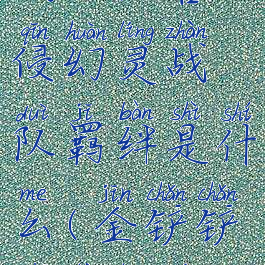 qīn huàn líng zhàn
侵幻灵战
duì jī bàn shì shí
队羁绊是什
me jīn chǎn chǎn
么(金铲铲